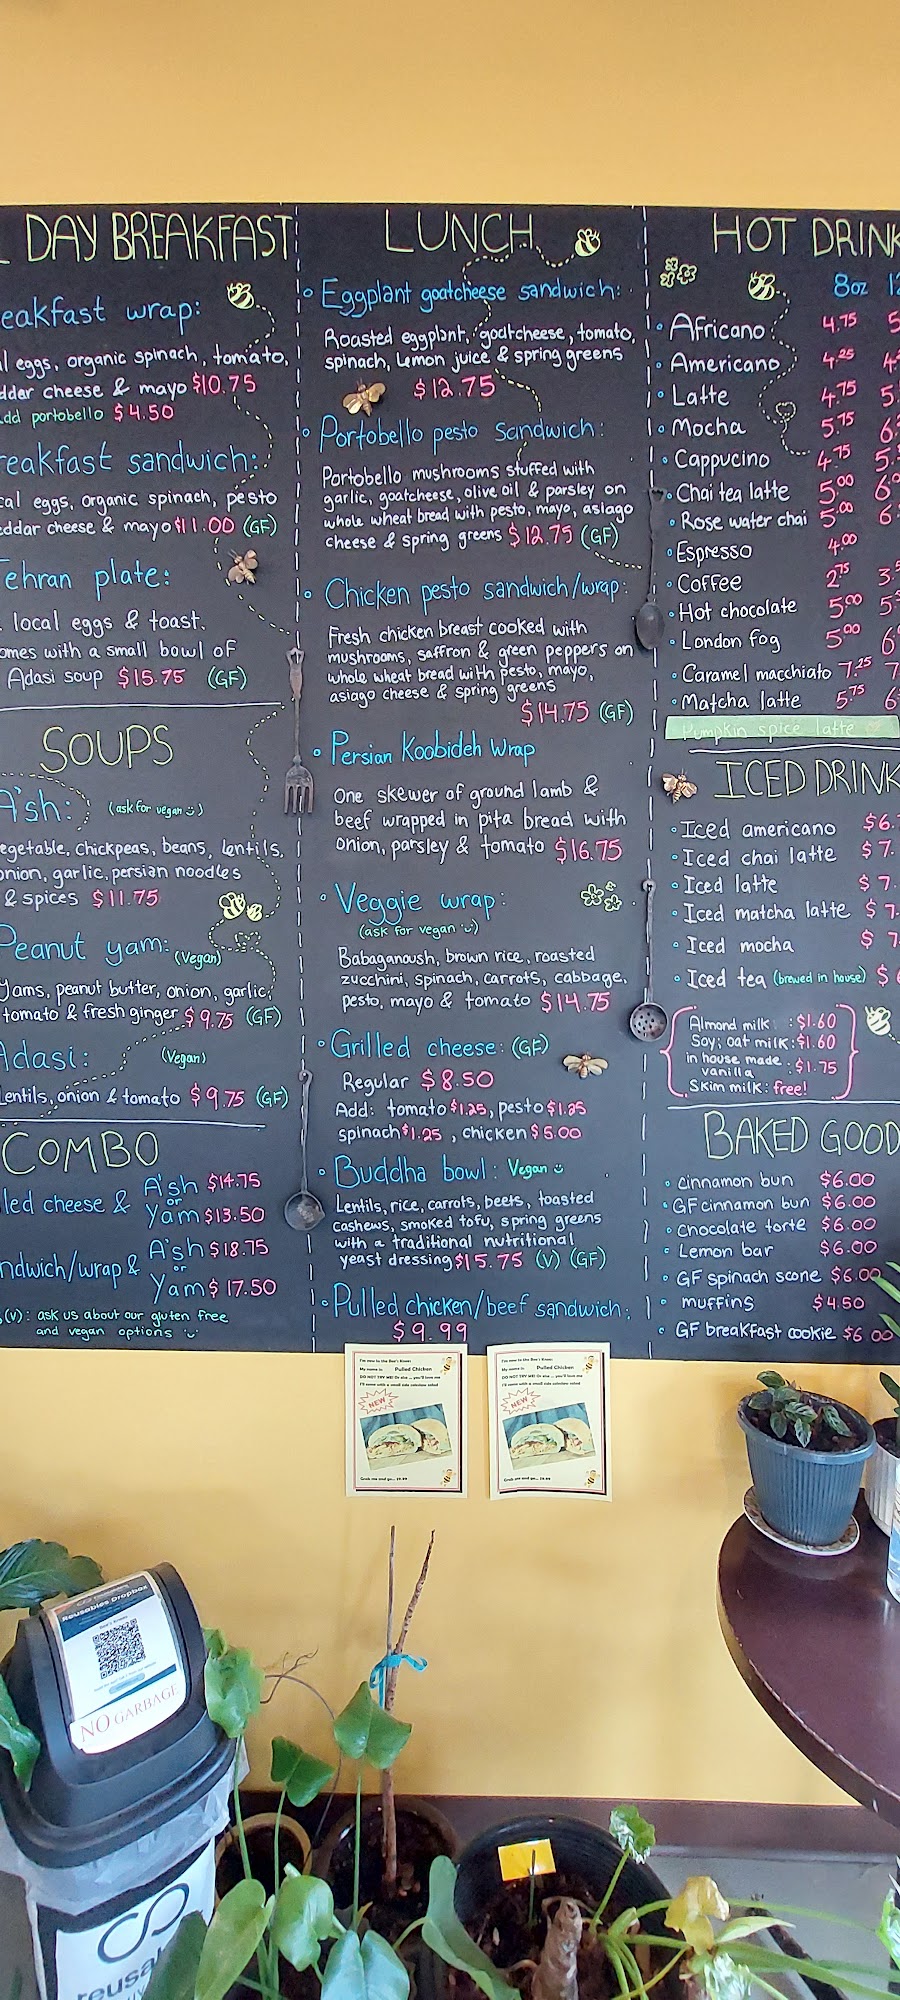 DAY BREAKFAST
eakfast wrap:
l eggs, organic spinach, tomato,
dar cheese & mayo $10.75
dd portobello $4.50
reakfast sandwich:
cal eggs, organic spinach, pesto
eddar cheese & mayo $11.00 (GF)
ehran plate:
local eggs & toast.
omes with a small bowl of
Adasi soup $15.75 (GF)
SOUPS
A'sh: (ask for vegan :))
egetable, chickpeas, beans, lentils,
onion, garlic, persian noodles
& spices $11.75
Peanut yam: (Vegan)
Yams, peanut butter, onion, garlic,
tomato & fresh ginger $9.75 (GF)
Adasi: (Vegan)
Lentils, onion & tomato $9.75 (GF)
COMBO
led cheese & A'sh $14.75
or
Yam $13.50
ndwich/wrap & A'sh $18.75
or
Yam $17.50
(V): ask us about our gluten free
and vegan options
LUNCH
Eggplant goatcheese sandwich:
Roasted eggplant, goatcheese, tomato,
spinach, Lemon juice & spring greens
$12.75
Portobello pesto sandwich:
Portobello mushrooms stuffed with
garlic, goatcheese, olive oil & parsley on
whole wheat bread with pesto, mayo, asiago
cheese & spring greens $12.75 (GF)
Chicken pesto sandwich/wrap:
Fresh chicken breast cooked with
mushrooms, saffron & green peppers on
whole wheat bread with pesto, mayo,
asiago cheese & spring greens
$14.75 (GF)
Persian Koobideh Wrap
One skewer of ground lamb &
beef wrapped in pita bread with
onion, parsley & tomato $16.75
Veggie wrap:
(ask for vegan :))
Babaganoush, brown rice, roasted
zucchini, spinach, carrots, cabbage,
pesto, mayo & tomato $14.75
Grilled cheese: (GF)
Regular $8.50
Add: tomato $1.25, pesto $1.25
spinach $1.25, chicken $5.00
Buddha bowl: Vegan
Lentils, rice, carrots, beets, toasted
cashews, smoked tofu, spring greens
with a traditional nutritional
yeast dressing $15.75 (V) (GF)
Pulled chicken/beef sandwich:
$9.99
HOT DRINK
8oz 1
Africano 4.75 5
Americano 4.25 4
Latte 4.75 5
Mocha 5.75 6
Cappucino 4.75 5
Chai tea latte 5.00 6
Rose water chai 5.00 6
Espresso 4.00
Coffee 2.75 3
Hot chocolate 5.00 5
London fog 5.00 6
Caramel macchiato 7.25 7
Matcha latte 5.75 6
Pumpkin spice latte
ICED DRINK
Iced americano $6.
Iced chai latte $7.
Iced latte $7.
Iced matcha latte $7
Iced mocha $7
Iced tea (brewed in house) $
Almond milk: $1.60
Soy; oat milk: $1.60
in house made
vanilla: $1.75
Skim milk: free!
BAKED GOOD
cinnamon bun $6.00
GF cinnamon bun $6.00
Chocolate torte $6.00
Lemon bar $6.00
GF spinach scone $6.00
muffins $4.50
GF breakfast cookie $6.00
I'm new to the Bee's Knees
My name is: Pulled Chicken
DO NOT TRY ME! Or else ... you'll love me
I'll come with a small side coleslaw salad
NEW
Grab me and go... $9.99
I'm new to the Bee's Knees
My name is: Pulled Chicken
DO NOT TRY ME! Or else ... you'll love me
I'll come with a small side coleslaw salad
NEW
Grab me and go... $9.99
Reusables Dropbox
Bee's Knees
NO GARBAGE
reusa